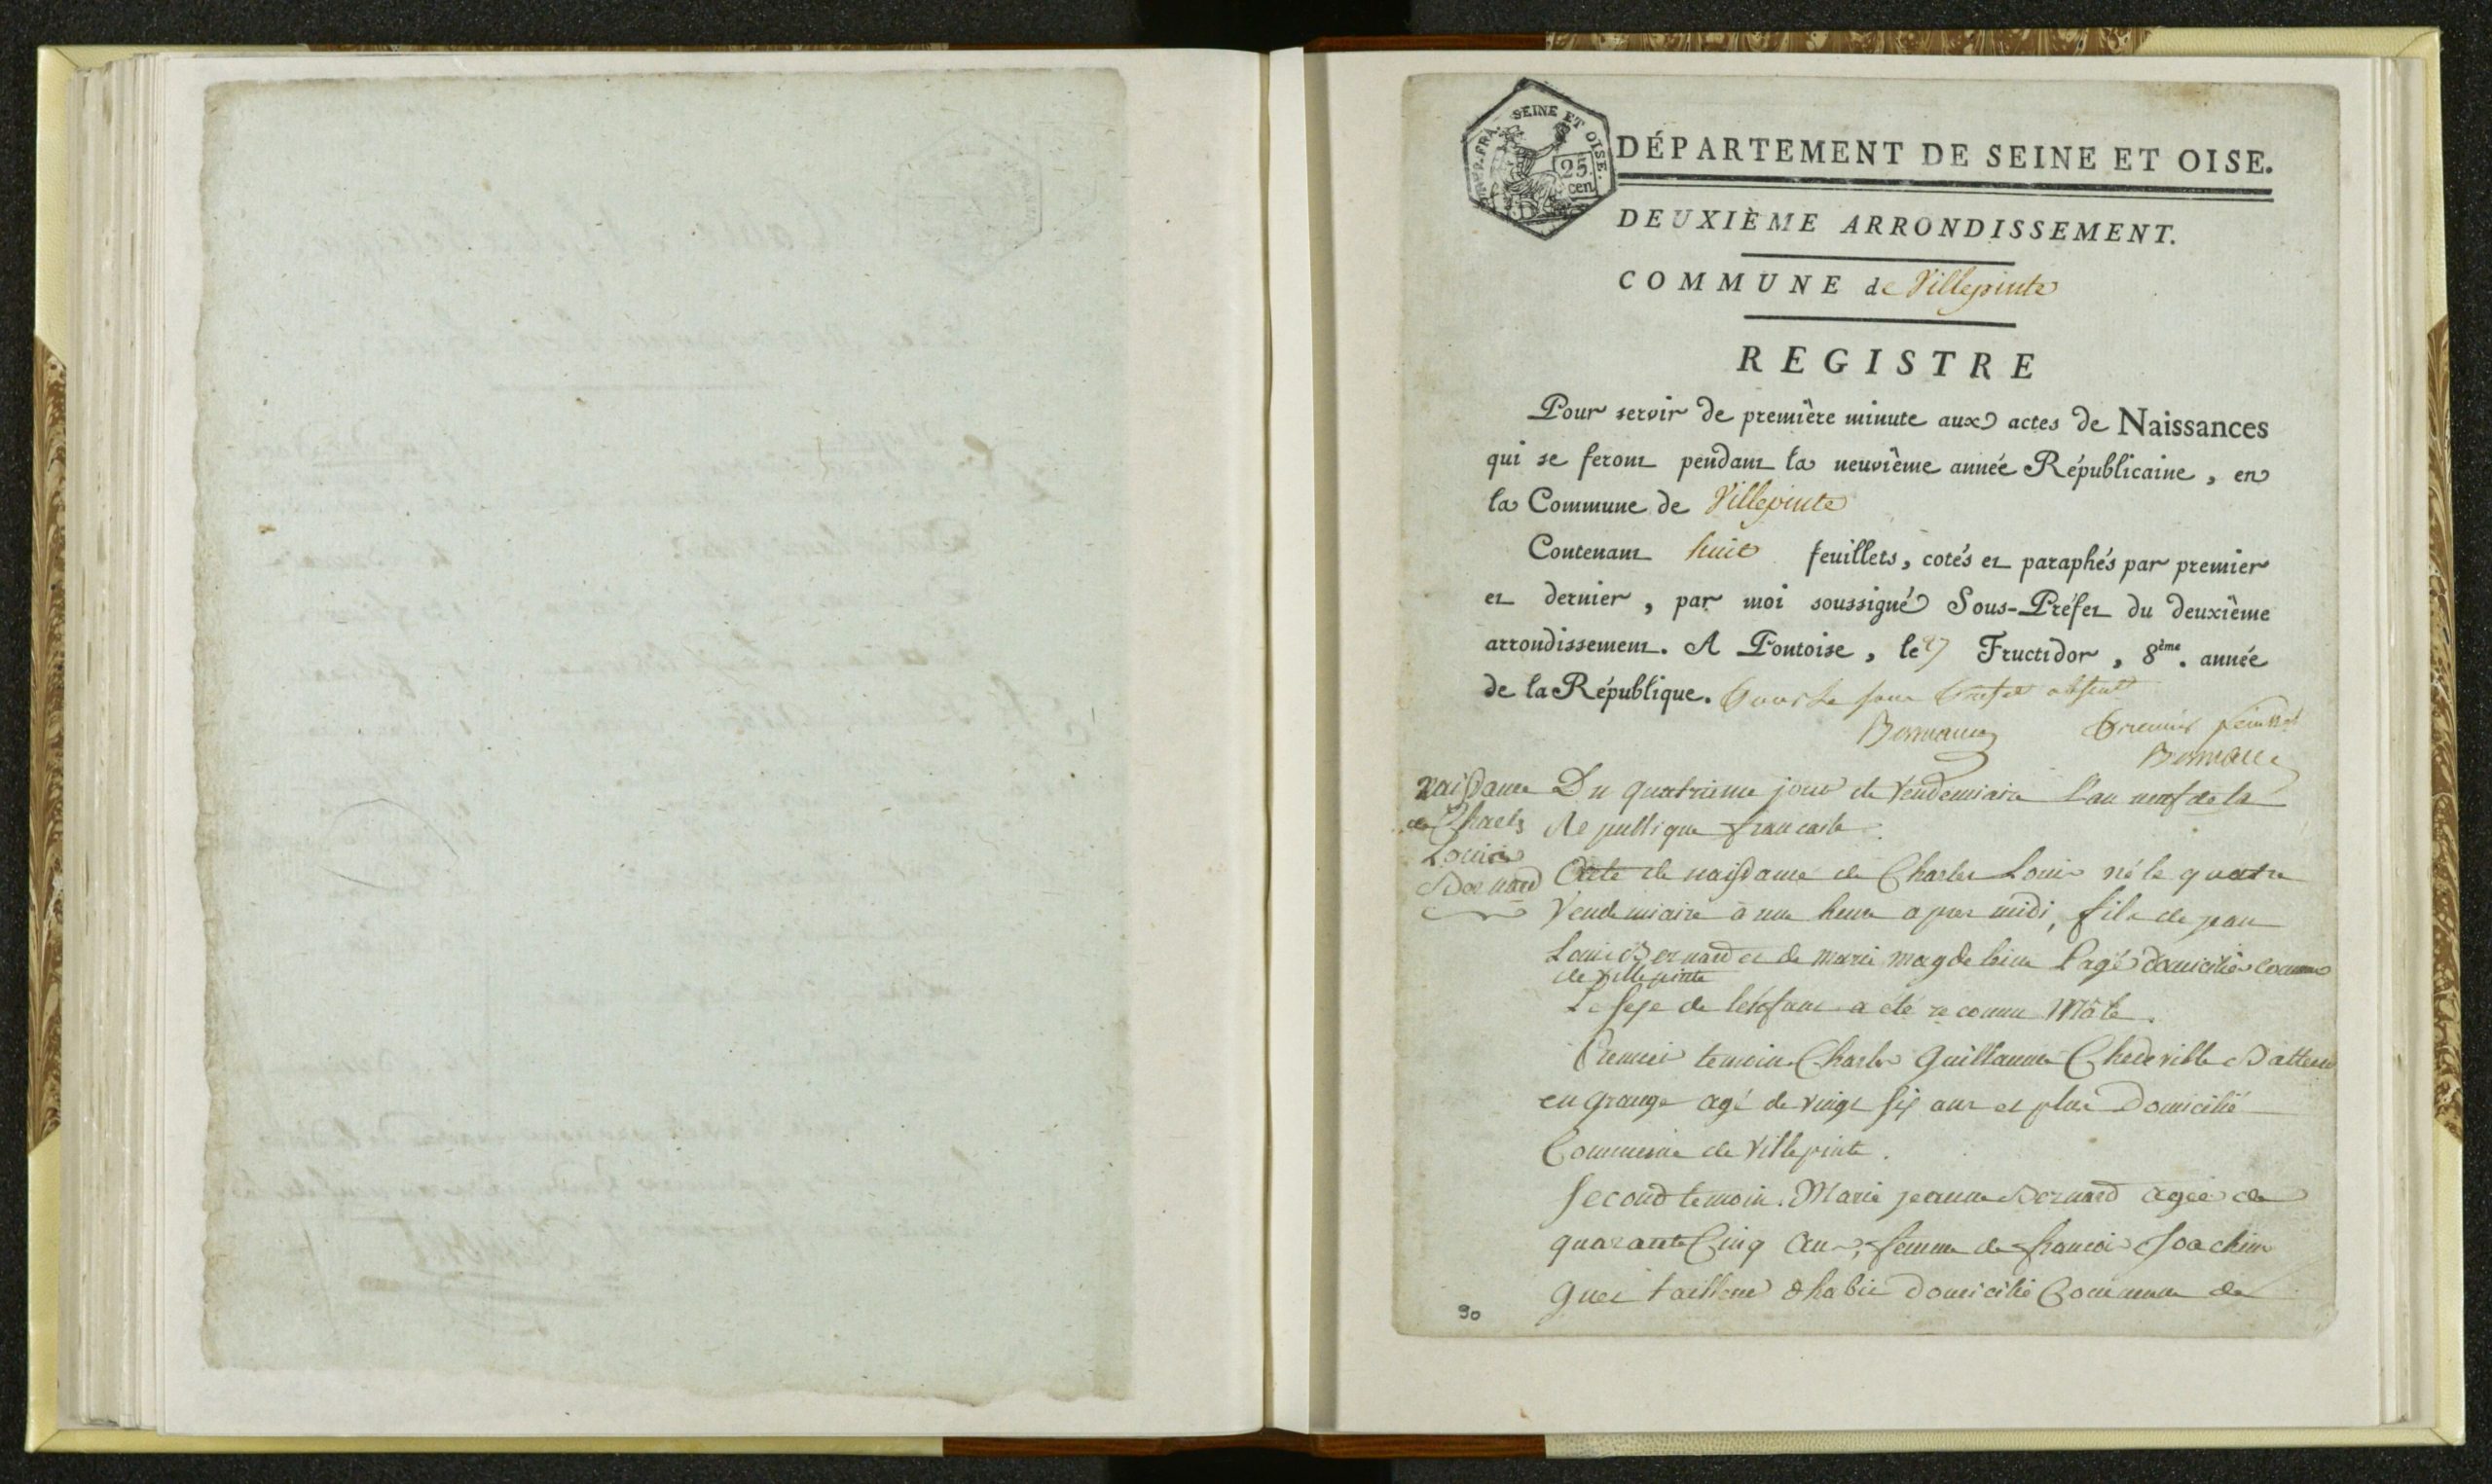 SEINE ET OISE.
25
cen
DÉPARTEMENT DE SEINE ET OISE.
DEUXIÈME ARRONDISSEMENT.
COMMUNE de Villepinte
REGISTRE
Pour servir de première minute aux actes de Naissances
qui se feront pendant la neuvième année Républicaine, en
la Commune de Villepinte
Contenant huit feuillets, cotés et paraphés par premier
et dernier, par moi soussigné Sous-Préfet du deuxième
arrondissement. A Pontoise, le Fructidor, 8ème. année
de la République. pour Le sous Prefet absent
premier feuillet
naissance Du quatrieme jour de Vendemiaire l'an neuf de la
de Charles Republique francaise
Louis
Bernard Acte de naissance de Charles Louis né le quatre
Vendemiaire à une heure apres midi, fils de jean
Louis Bernard et de marie magdeleine Pagé domiciliés commune
de villepinte
Le sexe de l'enfant a été reconnu Mâle.
Premier temoin Charles Guillaume Chedeville Batteur
en grange agé de vingt six ans et plus Domicilié
Commune de Villepinte.
Second temoin. Marie jeanne Bernard agée de
quarante Cinq ans, femme de francois Joachim
tailleur d'habit domicilié Commune de
90